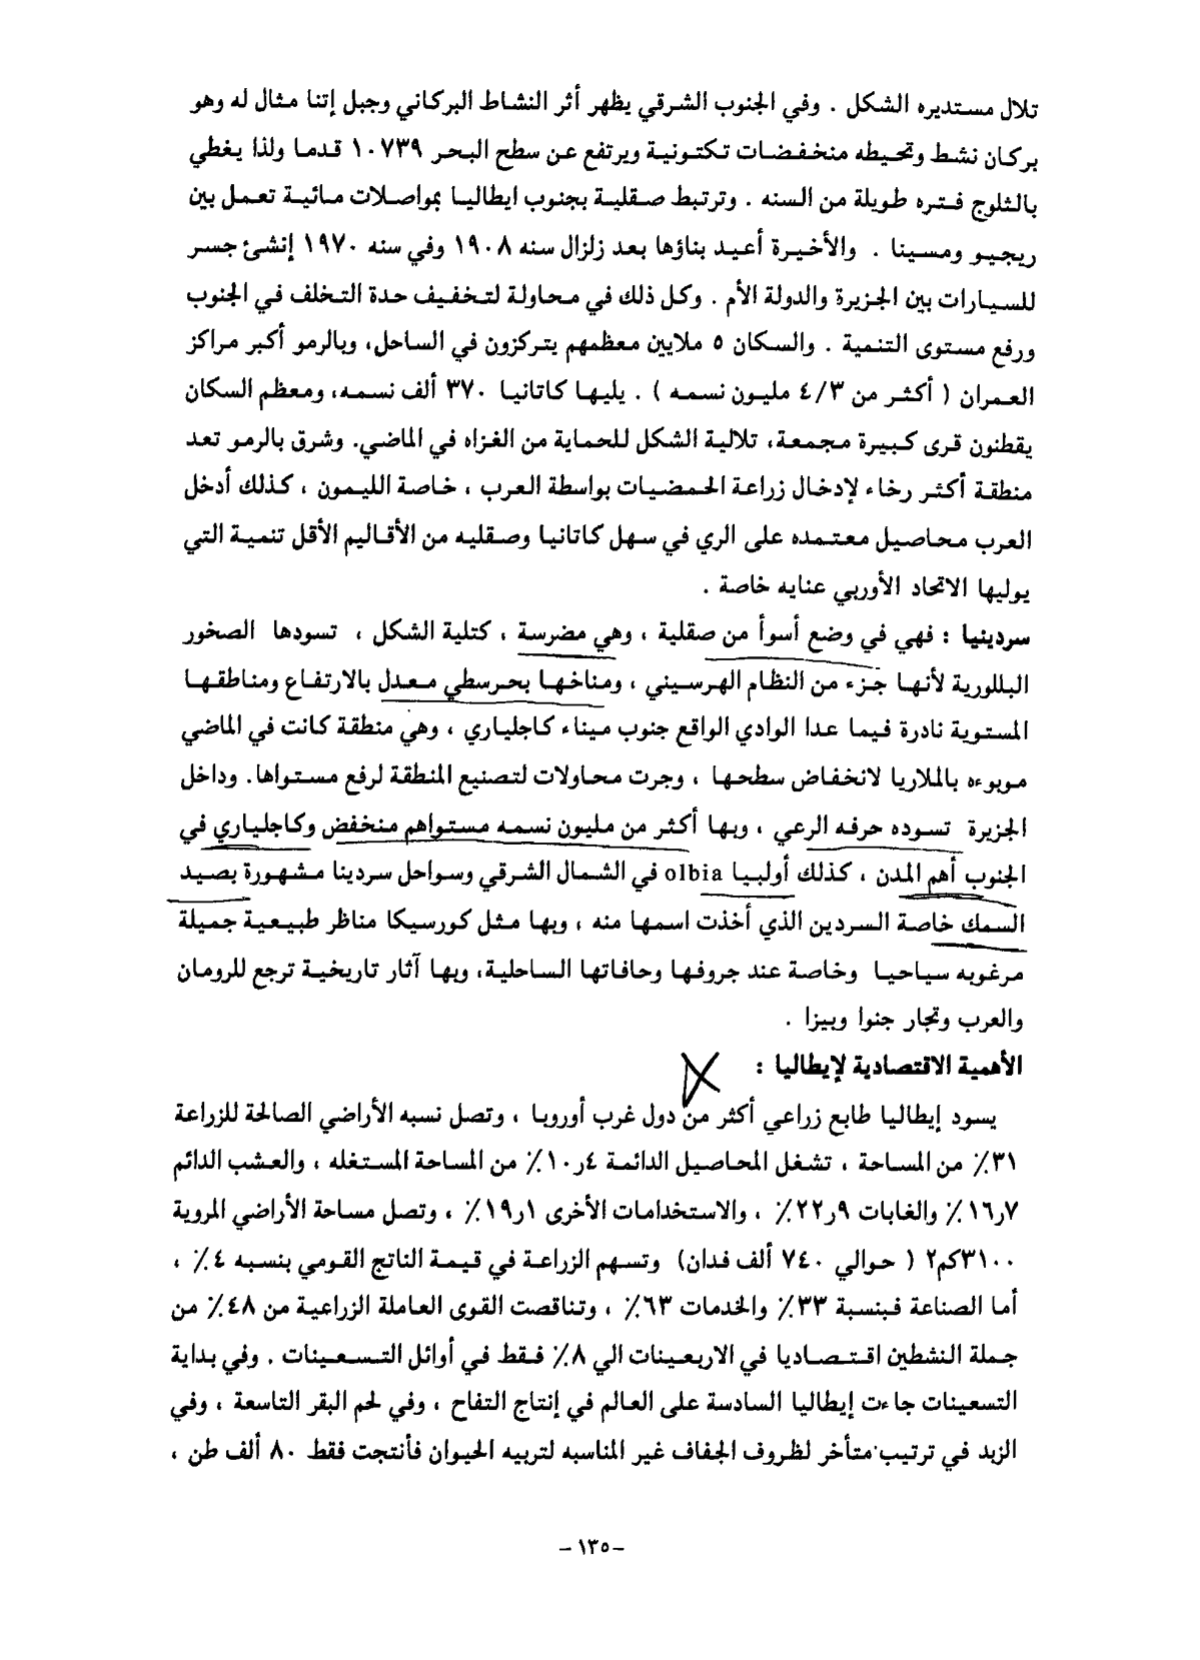 تلال مستديره الشكل . وفي الجنوب الشرقي يظهر أثر النشاط البركاني وجبل إتنا مثال له وهو
بركان نشط وتحيطه منخفضات تكتونية ويرتفع عن سطح البحر ١٠٧٣٩ قدما ولذا يغطي
بالثلوج فتره طويلة من السنه . وترتبط صقلية بجنوب ايطاليا بمواصلات مائية تعمل بين
ريجيو ومسينا . والأخيرة أعيد بناؤها بعد زلزال سنه ١٩٠٨ وفي سنه ١٩٧٠ إنشئ جسر
للسيارات بين الجزيرة والدولة الأم . وكل ذلك في محاولة لتخفيف حدة التخلف في الجنوب
ورفع مستوى التنمية . والسكان ٥ ملايين معظمهم يتركزون في الساحل، وبالرمو أكبر مراكز
العمران ( أكثر من ٤/٣ مليون نسمه ) . يليها كاتانيا ٣٧٠ ألف نسمه، ومعظم السكان
يقطنون قرى كبيرة مجمعة، تلالية الشكل للحماية من الغزاه في الماضي. وشرق بالرمو تعد
منطقة أكثر رخاء لإدخال زراعة الحمضيات بواسطة العرب ، خاصة الليمون ، كذلك أدخل
العرب محاصيل معتمده على الري في سهل كاتانيا وصقليه من الأقاليم الأقل تنمية التي
يوليها الاتحاد الأوربي عنايه خاصة .
سردينيا : فهي في وضع أسوأ من صقلية ، وهي مضرسة ، كتلية الشكل ، تسودها الصخور
البللورية لأنها جزء من النظام الهرسيني ، ومناخها بحرسطي معدل بالارتفاع ومناطقها
المستوية نادرة فيما عدا الوادي الواقع جنوب ميناء كاجلياري ، وهي منطقة كانت في الماضي
موبوءه بالملاريا لانخفاض سطحها ، وجرت محاولات لتصنيع المنطقة لرفع مستواها. وداخل
الجزيرة تسوده حرفه الرعي ، وبها أكثر من مليون نسمه مستواهم منخفض وكاجلياري في
الجنوب أهم المدن ، كذلك أولبيا olbia في الشمال الشرقي وسواحل سردينا مشهورة بصيد
السمك خاصة السردين الذي أخذت اسمها منه ، وبها مثل كورسيكا مناظر طبيعية جميلة
مرغوبه سياحيا وخاصة عند جروفها وحافاتها الساحلية، وبها آثار تاريخية ترجع للرومان
والعرب وتجار جنوا وبيزا .
الأهمية الاقتصادية لإيطاليا :
يسود إيطاليا طابع زراعي أكثر من دول غرب أوروبا ، وتصل نسبه الأراضي الصالحة للزراعة
٣١٪ من المساحة ، تشغل المحاصيل الدائمة ٤ر١٠٪ من المساحة المستغله ، والعشب الدائم
٧ر١٦٪ والغابات ٩ر٢٢٪ ، والاستخدامات الأخرى ١ر١٩٪ ، وتصل مساحة الأراضي المروية
٣١٠٠كم٢ ( حوالي ٧٤٠ ألف فدان) وتسهم الزراعة في قيمة الناتج القومي بنسبه ٤٪ ،
أما الصناعة فبنسبة ٣٣٪ والخدمات ٦٣٪ ، وتناقصت القوى العاملة الزراعية من ٤٨٪ من
جملة النشطين اقتصاديا في الاربعينات الي ٨٪ فقط في أوائل التسعينات . وفي بداية
التسعينات جاءت إيطاليا السادسة على العالم في إنتاج التفاح ، وفي لحم البقر التاسعة ، وفي
الزبد في ترتيب متأخر لظروف الجفاف غير المناسبه لتربيه الحيوان فأنتجت فقط ٨٠ ألف طن ،
-١٣٥-